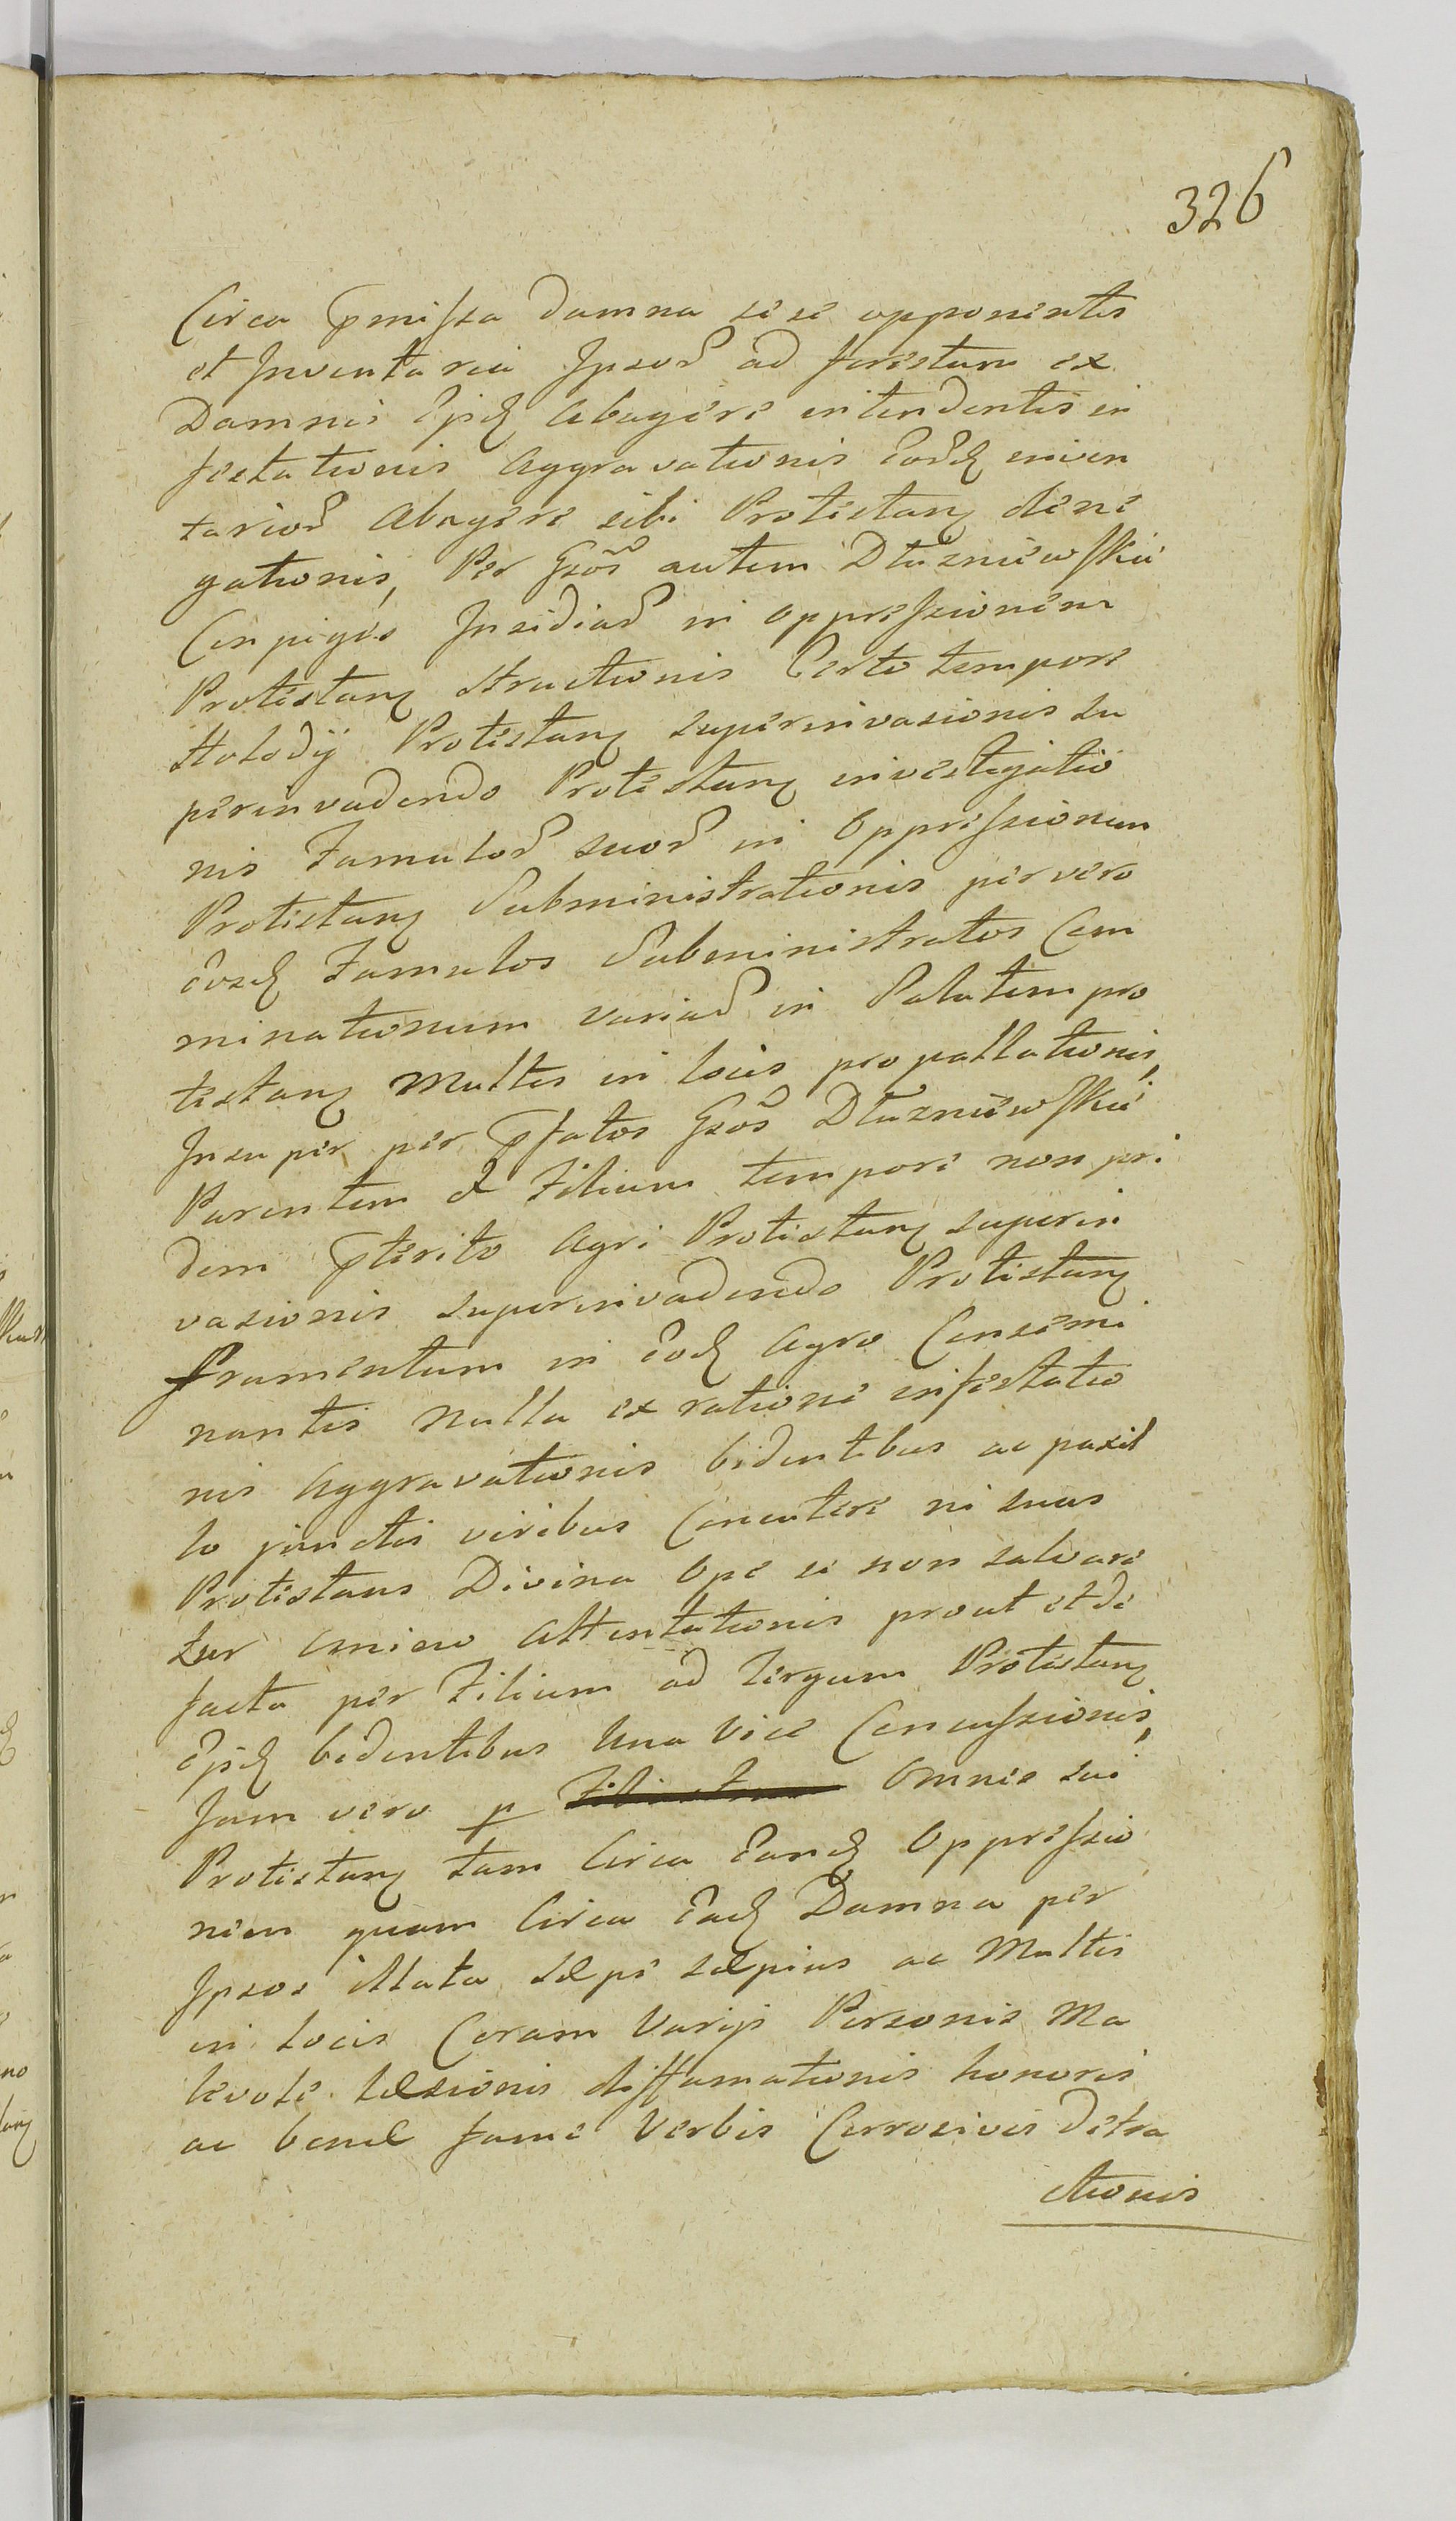 326
Circa p̄missa damna sese opponentis
et Inventaria Ipsor̄ ad forestam ex
Damnis ijsdē abagere intendentis in
festationis aggravationis eordē inven
tarior̄ abagere sibi Protestanȝ dene
gationis, Per Gsōs autem Dłuzniewskie
Conjuges Insidiar̄ in oppressionem
Protestanȝ structionis Certo tempore
Stolodij Protestanȝ superinvasionis su
perinvadendo Protestanȝ investigatio
nis Famulor̄ suor̄ in Oppressionem
Protestanȝ Subministrationis per vero
eosdē Famulos Subministratos Com
minationum variar̄ in Salutem pro
testanȝ Multis in locis propallationis,
Insuper per p̄fatos Gsōs Dłuzniewskie
Parentem & Filium tempore non pri
dem p̄terito Agri Protestanȝ superin
vasionis superinvadendo Protestanȝ
frumentum in eodē Agro Consemi
nantis nulla ex ratione infestatio
nis Aggravationis bidentibus ac paxil
lo junctis viribus Concutere ni suus
Protestans Divina Ope se non salvare
tur omnino attentationis prout et de
facto per Filium ad Tergum Protestanȝ
ijsdē bidentibus Una Vice Concussionis,
Jam vero p Omnes sui
Protestanȝ tam Circa eandē Oppressio
nem quam Circa eadē Damna per
Ipsos illata sæpe sæpius ac Multis
in locis Coram Varijs Personis Ma
levole læsionis diffamationis honoris
ac bonæ fame Verbis Corrosivis detra
ctionis